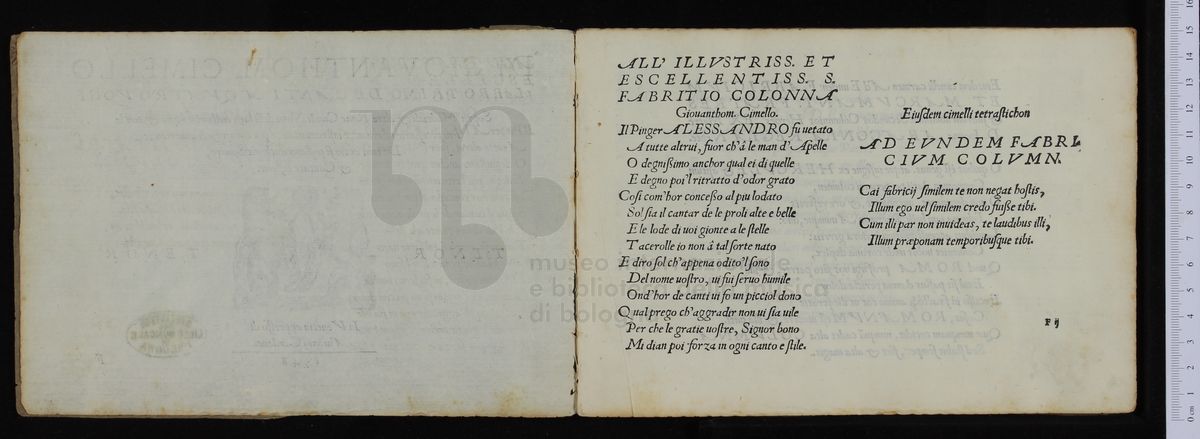 ALL' ILLVSTRISS. ET
ESCELLENTISS. S.
FABRITIO COLONNA
Giouanthom. Cimello.
Il Pinger ALESSANDRO fu uetato
A tutte altrui, fuor ch'à le man d'Apelle
O degnißimo anchor qual ei di quelle
E degno poi'l ritratto d'odor grato
Cosi com'hor conceßo al piu lodato
Sol sia il cantar de le proli alte e belle
E le lode di uoi gionte a le stelle
Tacerolle io non â tal sorte nato
E diro sol ch'appena odito'l sono
Del nome uostro, ui fui seruo humile
Ond'hor de canti ui fo un picciol dono
Qual prego ch'aggradir non ui sia uile
Per che le gratie uostre, Signor bono
Mi dian poi forza in ogni canto e stile.
Eiusdem cimelli tetrastichon
AD EVNDEM FABRI
CIVM COLVMN.
Cai fabricij similem te non negat hostis,
Illum ego uel similem credo fuaße tibi.
Cum illi par non inuideas, te laudibus illi,
Illum præponam temporibusque tibi.
F ij
museo
e biblioteca della musica
di bologna